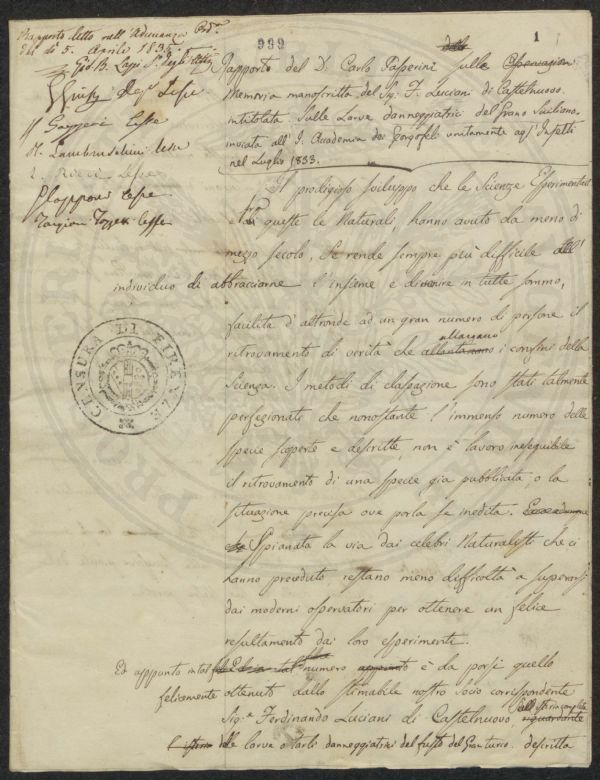 Rapporto letto nell'Adunanza Ord.ª
del dì 5. Aprile 1835.
999
1
Rapporto del D. Carlo Passerini sulle Osservazioni
Memoria manoscritta del Sig. F. Luciani di Castelnuovo
intitolata. Sulle Larve danneggiatrici del Grano Siciliano,
inviata all' I. Accademia dei Georgofili unitamente agl' Insetti
nel Luglio 1833.
Il prodigioso sviluppo che le Scienze Esperimentali
e queste le Naturali, hanno avuto da meno di
mezzo secolo, se rende sempre più difficile all'
individuo di abbracciarne l'insieme e divenire in tutte sommo,
facilita d'altronde ad un gran numero di persone il
ritrovamento di verità che allontanano allargano i confini della
Scienza. I metodi di classazione sono stati talmente
perfezionati che nonostante l'immenso numero delle
specie scoperte e descritte non è lavoro ineseguibile
il ritrovamento di una specie già pubblicata o la
situazione precisa ove porla se inedita.
Spianata la via dai celebri Naturalisti che ci
hanno preceduto restano meno difficoltà a superarsi
dai moderni osservatori per ottenere un felice
resultamento dai loro esperimenti.
Ed appunto in tal numero appunto è da porsi quello
felicemente ottenuto dallo stimabile nostro Socio corrispondente
Sig.ᵉ Ferdinando Luciani di Castelnuovo, riguardante
delle larve o tarli danneggiatrici del fusto del Granturco. descritta
CENSURA DI FIRENZE